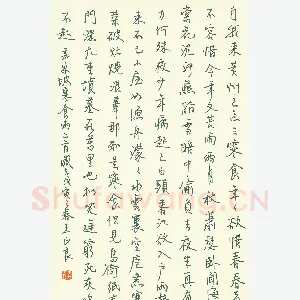 自我来黄州已过三寒食年年欲惜春春去
不容惜今年又苦雨两月秋萧瑟卧闻海
棠花泥污燕脂雪暗中偷负去夜半真有
力何殊病少年病起头已白春江欲入户雨势
来不已小屋如渔舟濛濛水雲裏空庖煮寒
菜破灶烧湿苇那知是寒食但见乌衔纸君
門深九重墳墓在萬里也拟哭途穷死灰吹
不起 坡寒食雨二首
Shufawang.CN